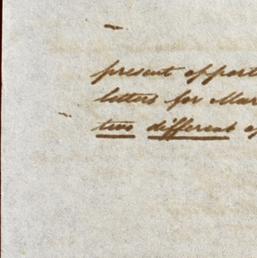 present opport
letters for Mar
two different o